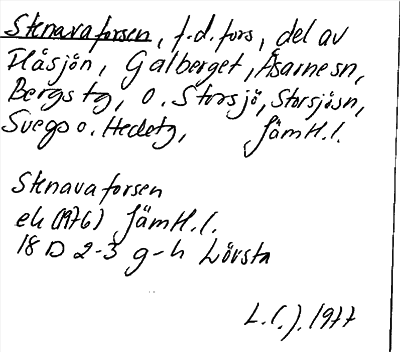 Stenavaforsen, f.d. fors, del av
Flåsjön, Galberget, Åsarne sn,
Bergs tg, o. Storsjö, Storsjö sn,
Svegs o. Hede tg, Jämtl. l.
Stenavaforsen
ek (1976) Jämtl. l.
18 D 2-3 g-h Lövsta
L. C. J. 1977